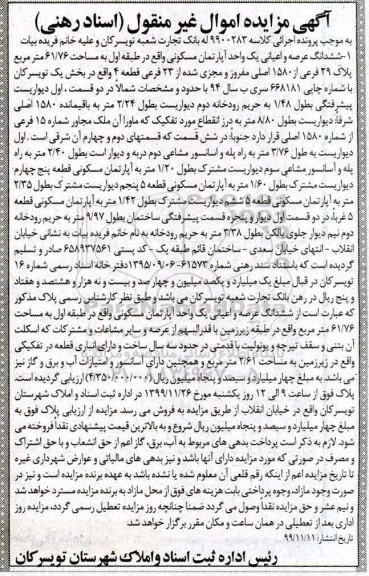 آگهی مزایده اموال غیر منقول (اسناد رهنی)
به موجب پرونده اجرائی کلاسه ۹۹۰۰۲۸۳ له بانک تجارت شعبه تویسرکان و علیه خانم فریده بیات
۱-ششدانگ عرصه و اعیانی یک واحد آپارتمان مسکونی واقع در طبقه اول به مساحت ۶۱/۷۶ متر مربع
پلاک ۲۹ فرعی از ۱۵۸۰ اصلی مفروز و مجزی شده از ۲۳ فرعی قطعه ۴ واقع در بخش یک تویسرکان
با شماره چاپی ۶۶۸۱۸۱ سری ب سال ۹۴ با حدود و مشخصات شمالاً در دو قسمت ، اول دیواریست
پیشرفتگی بطول ۱/۴۸ به حریم رودخانه دوم دیواریست بطول ۲/۲۴ متر به باقیمانده ۱۵۸۰ اصلی
شرقا: دیواریست بطول ۸/۸۰ متر به درز انقطاع مورد تفکیک که ماورا آن ملک مجاور شماره ۱۵ فرعی
از شماره ۱۵۸۰ اصلی قرار دارد جنوبا: در شش قسمت که قسمتهای دوم و چهارم آن شرقی است . اول
دیواریست به طول ۳/۷۶ متر به راه پله و آسانسور مشاعی دوم دربه و دیوار است بطول ۲/۴۰ متر به راه
پله و آسانسور مشاعی سوم دیواریست مشترک بطول ۱/۲۰ متر به آپارتمان مسکونی قطعه پنج چهارم
دیواریست مشترک بطول ۱/۶۰ متر به آپارتمان مسکونی قطعه ۵ پنجم دیواریست مشترک بطول ۲/۳۵
متر به آپارتمان مسکونی قطعه ۵ ششم دیواریست مشترک بطول ۱/۴۲ متر به آپارتمان مسکونی قطعه
۵ غربا: در دو قسمت اول دیوار و پنجره قسمت پیشرفتگی ساختمان بطول ۹/۹۷ متر به حریم رودخانه
دوم نیم دیوار جلوی بالکن بطول ۳/۳۸ متر به حریم رودخانه به نام خانم فریده بیات به نشانی خیابان
انقلاب - انتهای خیابان سعدی - ساختمان قائم طبقه یک - کد پستی ۶۵۸۹۳۷۵۶۱ صادر و تسلیم
گردیده است که باستناد سند رهنی شماره ۶۱۵۷۳-۱۳۹۵/۰۹/۰۶ دفترخانه اسناد رسمی شماره ۱۶
تویسرکان در قبال مبلغ یک میلیارد و یکصد میلیون و چهار صد و بیست و نه هزار و هشتصد و هفتاد
و پنج ریال در رهن بانک تجارت شعبه تویسرکان می باشد و طبق نظر کارشناس رسمی پلاک مذکور
که عبارت است از ششدانگ عرصه و اعیانی یک واحد آپارتمان مسکونی واقع در طبقه اول به مساحت
۶۱/۷۶ متر مربع واقع در طبقه زیرزمین با قدرالسهم از عرصه و سایر مشاعات و مشترکات که اسکلت
آن بتنی و سقف تیرچه و یونولیت با قدمتی در حدود سه سال ساخت و دارای انباری قطعه در تفکیکی
واقع در زیرزمین به مساحت ۳/۶۱ متر مربع و همچنین دارای آسانسور و امتیازات آب و برق و گاز نیز
می باشد. به مبلغ چهار میلیارد و سیصد و پنجاه میلیون ریال (۴/۳۵۰/۰۰۰/۰۰۰) ارزیابی گردیده است.
پلاک فوق از ساعت ۹ الی ۱۲ روز یکشنبه مورخ ۱۳۹۹/۱۱/۲۶ در اداره ثبت اسناد و املاک شهرستان
تویسرکان واقع در خیابان انقلاب از طریق مزایده به فروش می رسد. مزایده از ارزیابی پلاک فوق به
مبلغ چهار میلیارد و سیصد و پنجاه میلیون ریال شروع و به بالاترین قیمت پیشنهادی نقداً فروخته می
شود. لازم به ذکر است پرداخت بدهی های مربوط به آب، برق، گاز اعم از حق انشعاب و یا حق اشتراک
و مصرف در صورتی که مورد مزایده دارای آنها باشد و نیز بدهی های مالیاتی و عوارض شهرداری غیره
تا تاریخ مزایده اعم از اینکه رقم قلعی آن معلوم شده یا نشده باشد به عهده برنده مزایده است و نیز در
صورت وجود مازاد، وجوه پرداختی بابت هزینه های فوق از محل مازاد به برنده مزایده مسترد خواهد شد
و نیم عشر و حق مزایده نقداً وصول می گردد ضمنا چنانچه روز مزایده تعطیل رسمی گردد، مزایده روز
اداری بعد از تعطیلی در همان ساعت و مکان مقرر برگزار خواهد شد.
انتشار: ۹۹/۱۱/۱۱
رئیس اداره ثبت اسناد واملاک شهرستان تویسرکان